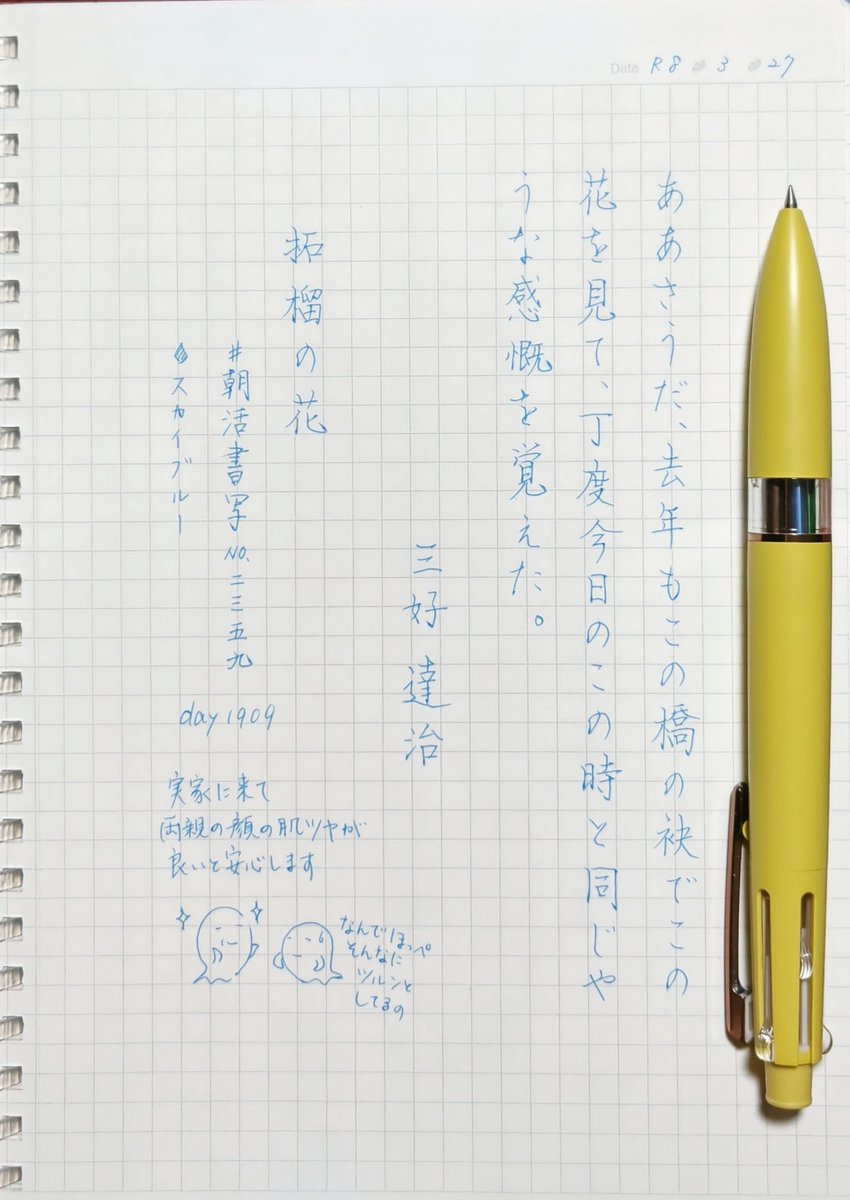 Date R8 3 27
ああさうだ、去年もこの橋の袂でこの
花を見て、丁度今日のこの時と同じや
うな感慨を覚えた。
三好達治
拓榴の花
#朝活書写 NO.二三五九
スカイブルー
day 1909
実家に来て
両親の顔の肌ツヤが
良いと安心します
なんでほっぺ
そんなに
ツルンと
してるの